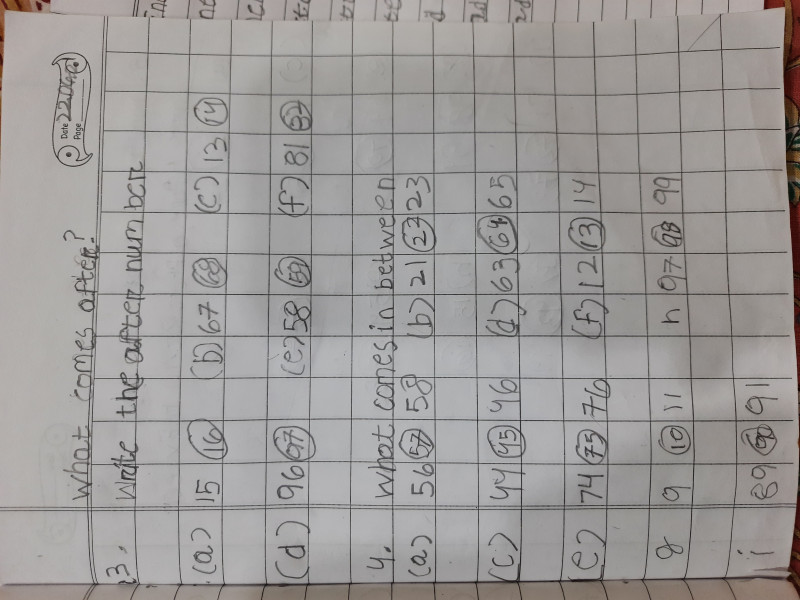 Date 22/04/
Page
What comes after?
3. Write the after number
(a) 15 16 (b) 67 68 (c) 13 14
(d) 96 97 (e) 58 59 (f) 81
4. What comes in between
(a) 56 57 58 (b) 21 22 23
(c) 44 45 46 (d) 63 64 65
(e) 74 75 76 (f) 12 13 14
g 9 10 11 h 97 98 99
i 89 90 91